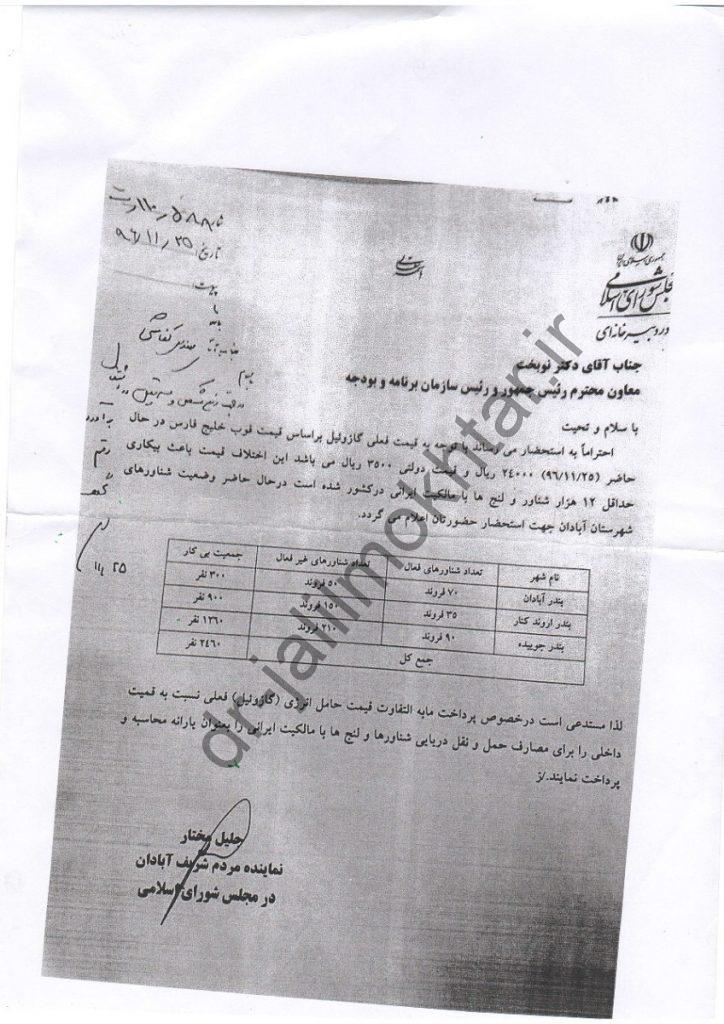 جمهوری اسلامی ایران
مجلس شورای اسلامی
در دبیرخانه‌ای
تاریخ: ۹۶/۱۱/۲۵
پیوست:
جناب آقای دکتر نوبخت
معاون محترم رئیس جمهور و رئیس سازمان برنامه و بودجه
با سلام و تحیت
احتراماً به استحضار می رساند با توجه به قیمت فعلی گازوئیل براساس قیمت فوب خلیج فارس در حال
حاضر (۹۶/۱۱/۲۵) ۲۴۰۰۰ ریال و قیمت دولتی ۳۵۰۰ ریال می باشد این اختلاف قیمت باعث بیکاری
حداقل ۱۲ هزار شناور و لنج ها با مالکیت ایرانی درکشور شده است درحال حاضر وضعیت شناورهای
شهرستان آبادان جهت استحضار حضورتان اعلام می گردد.
نام شهر تعداد شناورهای فعال تعداد شناورهای غیر فعال جمعیت بی کار
بندر آبادان ۷۰ فروند ۵۰ فروند ۳۰۰ نفر
بندر اروند کنار ۳۵ فروند ۱۵۰ فروند ۹۰۰ نفر
بندر چوبیده ۹۰ فروند ۲۱۰ فروند ۱۲۶۰ نفر
جمع کل ۲۴۶۰ نفر
لذا مستدعی است درخصوص پرداخت مابه التفاوت قیمت حامل انرژی (گازوئیل) فعلی نسبت به قمیت
داخلی را برای مصارف حمل و نقل دریایی شناورها و لنج ها با مالکیت ایرانی را بعنوان یارانه محاسبه و
پرداخت نمایند./ز
جلیل مختار
نماینده مردم شریف آبادان
در مجلس شورای اسلامی
dr.jalilmokhtar.ir